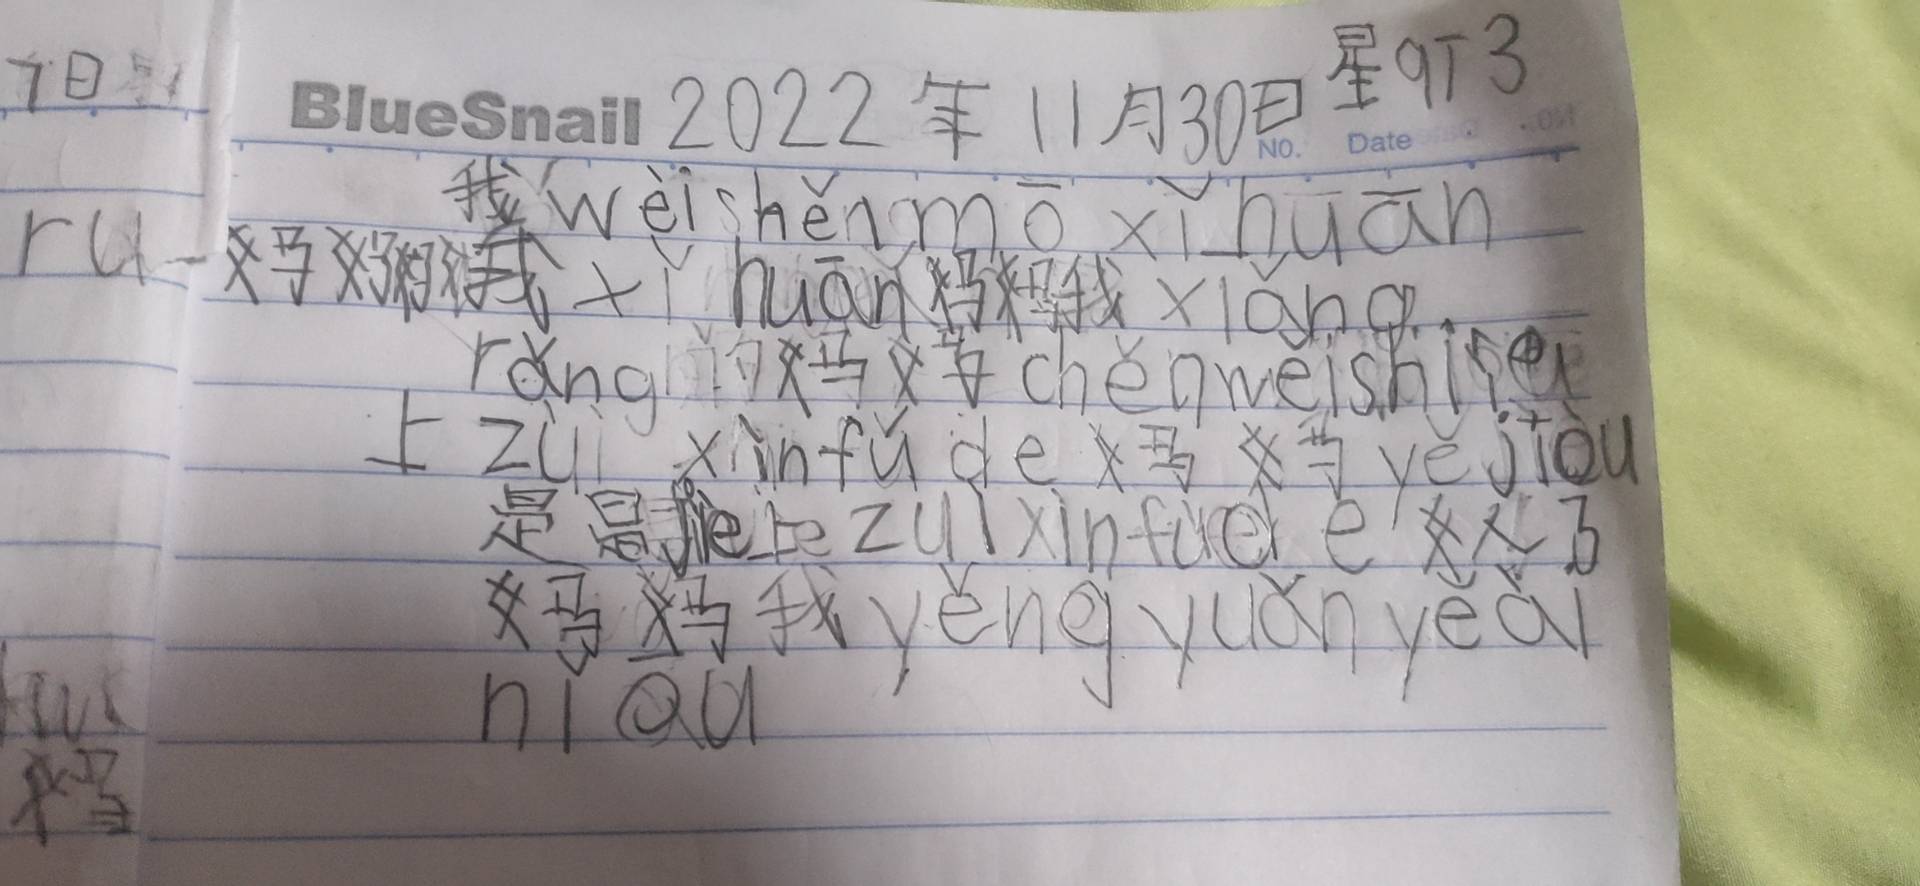 7日
ru
妈
BlueSnail 2022年11月30日 星qT3
NO. Date
我wèishěnmō xǐhuān
妈妈妈妈我xǐhuān妈妈我xiǎng
rǎng妈妈chěnwéishì
上zùi xìnfǔde妈妈yějiòu
是 zuìxìnfúde
妈妈我yěngyuǎnyěài
nǐ